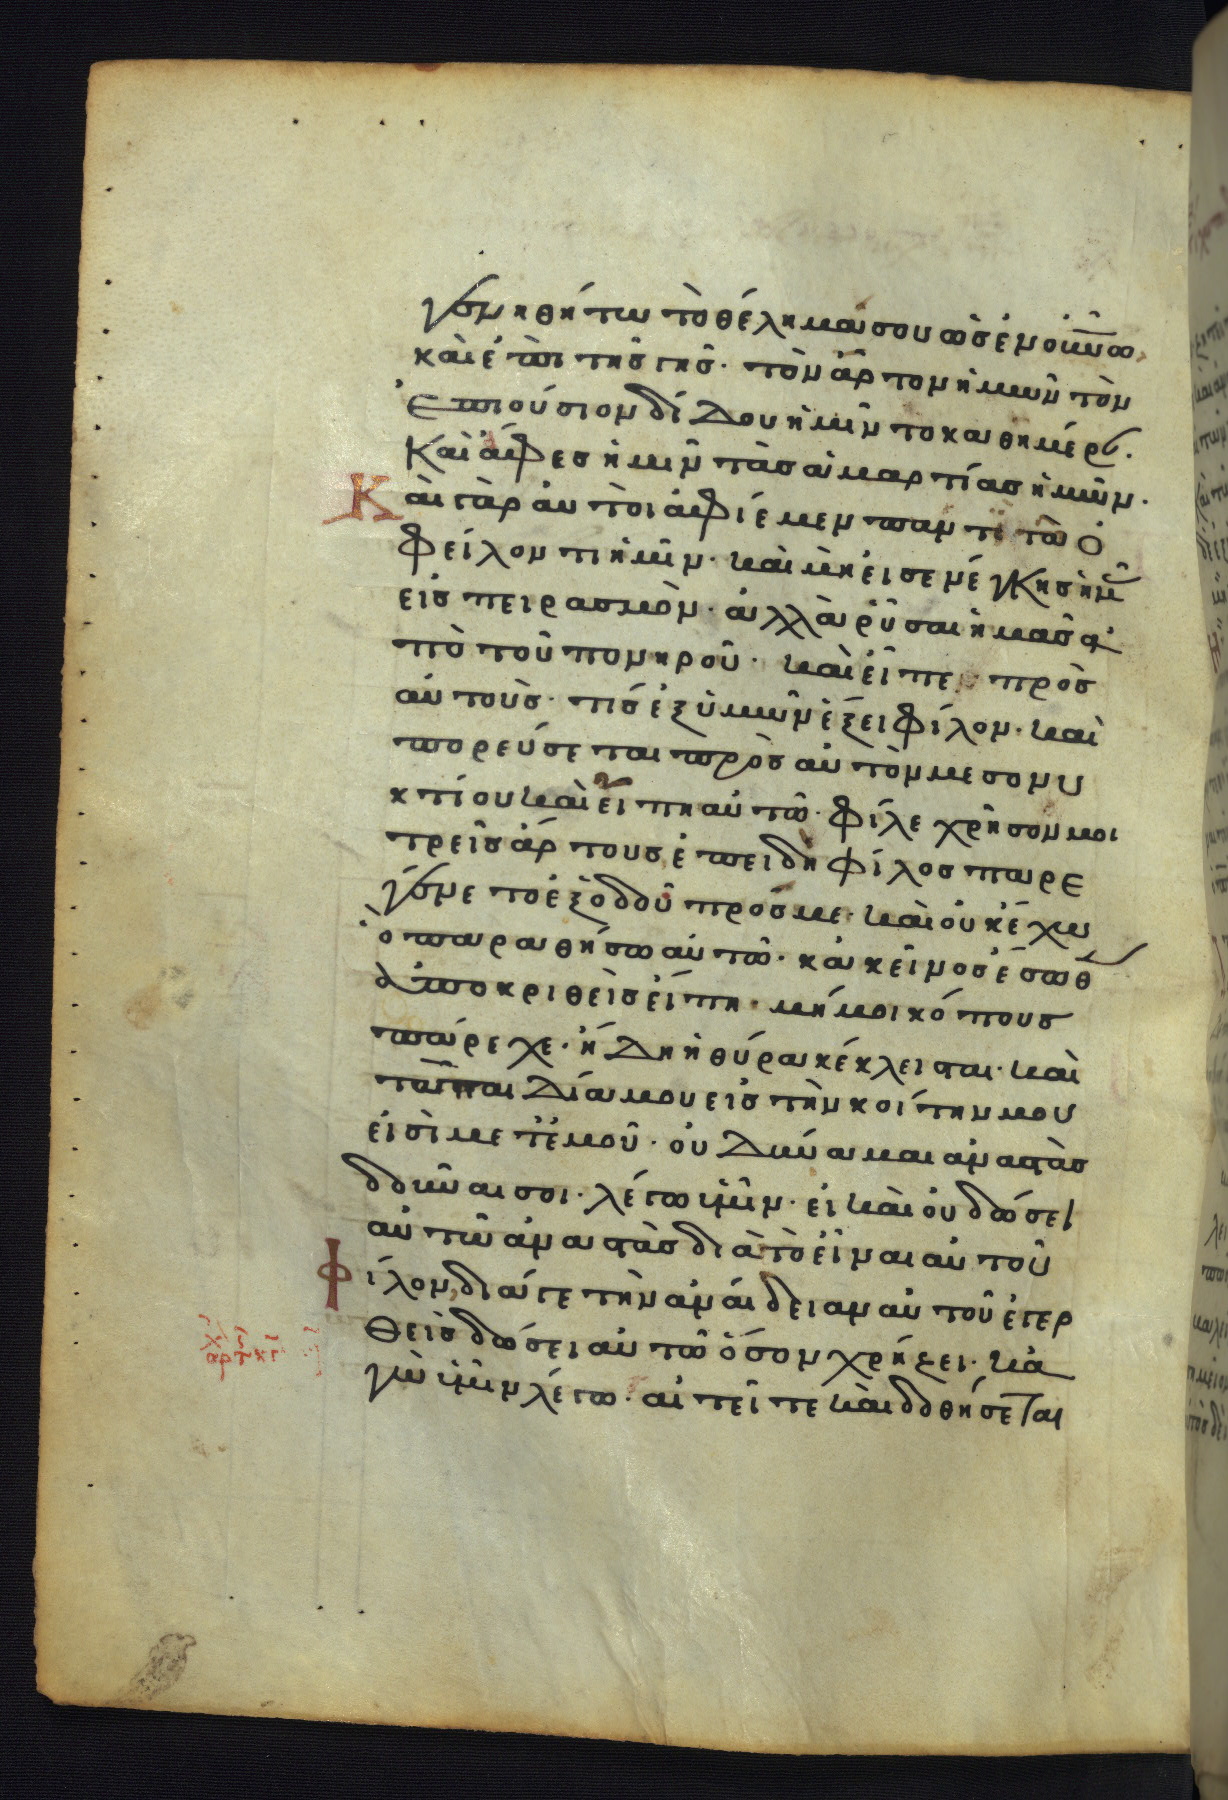 γενηθήτω τὸ θέλημα σου ὡς ἐν οὐνῶ
καὶ ἐπὶ τῆς γῆς· τὸν ἄρτον ἡμῶν τὸν
ἐπιούσιον δίδου ἡμῖν το καθημέρ
Καὶ ἄφες ἡμῖν τὰς ἁμαρτίας ἡμῶν·
Καὶ γὰρ αὐτοὶ ἀφίεμεν παντὶ τῶ ὀ
φείλοντι ἡμῖν· καὶ μὴ εἰσενέγκης ἡμ
εἰς πειρασμὸν· ἀλλὰ ῥῦσαι ἡμᾶς ἀ
πὸ τοῦ πονηροῦ· καὶ εἶπε πρὸς
αὐτοὺς· τίς ἐξ ὑμῶν ἕξει φίλον· καὶ
πορεύσεται πρὸς αὐτὸν μεσονυ
κτίου καὶ εἴπη αὐτῶ· φίλε χρῆσον μοι
τρεῖς ἄρτους ἐπειδὴ φίλος παρε
γένετο ἐξ ὁδοῦ πρός με· καὶ οὐκ ἔχω
ὃ παραθήσω αὐτῶ· κἀκεῖνος ἔσωθ
ἀποκριθεὶς εἴπη· μή μοι κόπους
πάρεχε· ἤδη ἡ θύρα κέκλεισται· καὶ
τὰ παιδία μου εἰς τὴν κοίτην μου
εἰσὶ μετ ἐμοῦ· οὐ δύναμαι ἀναστὰς
δοῦναι σοι· λέγω ὑμῖν· εἰ καὶ οὐ δώσει
αὐτῶ ἀναστὰς διὰ τὸ εἶναι αὐτοῦ
Φίλον, διά γε τὴν ἀναίδειαν αὐτοῦ ἐγερ
θεὶς δώσει αὐτῶ ὅσον χρήζει· κἀ
γὼ ὑμῖν λέγω· αἰτεῖτε καὶ δοθήσεται